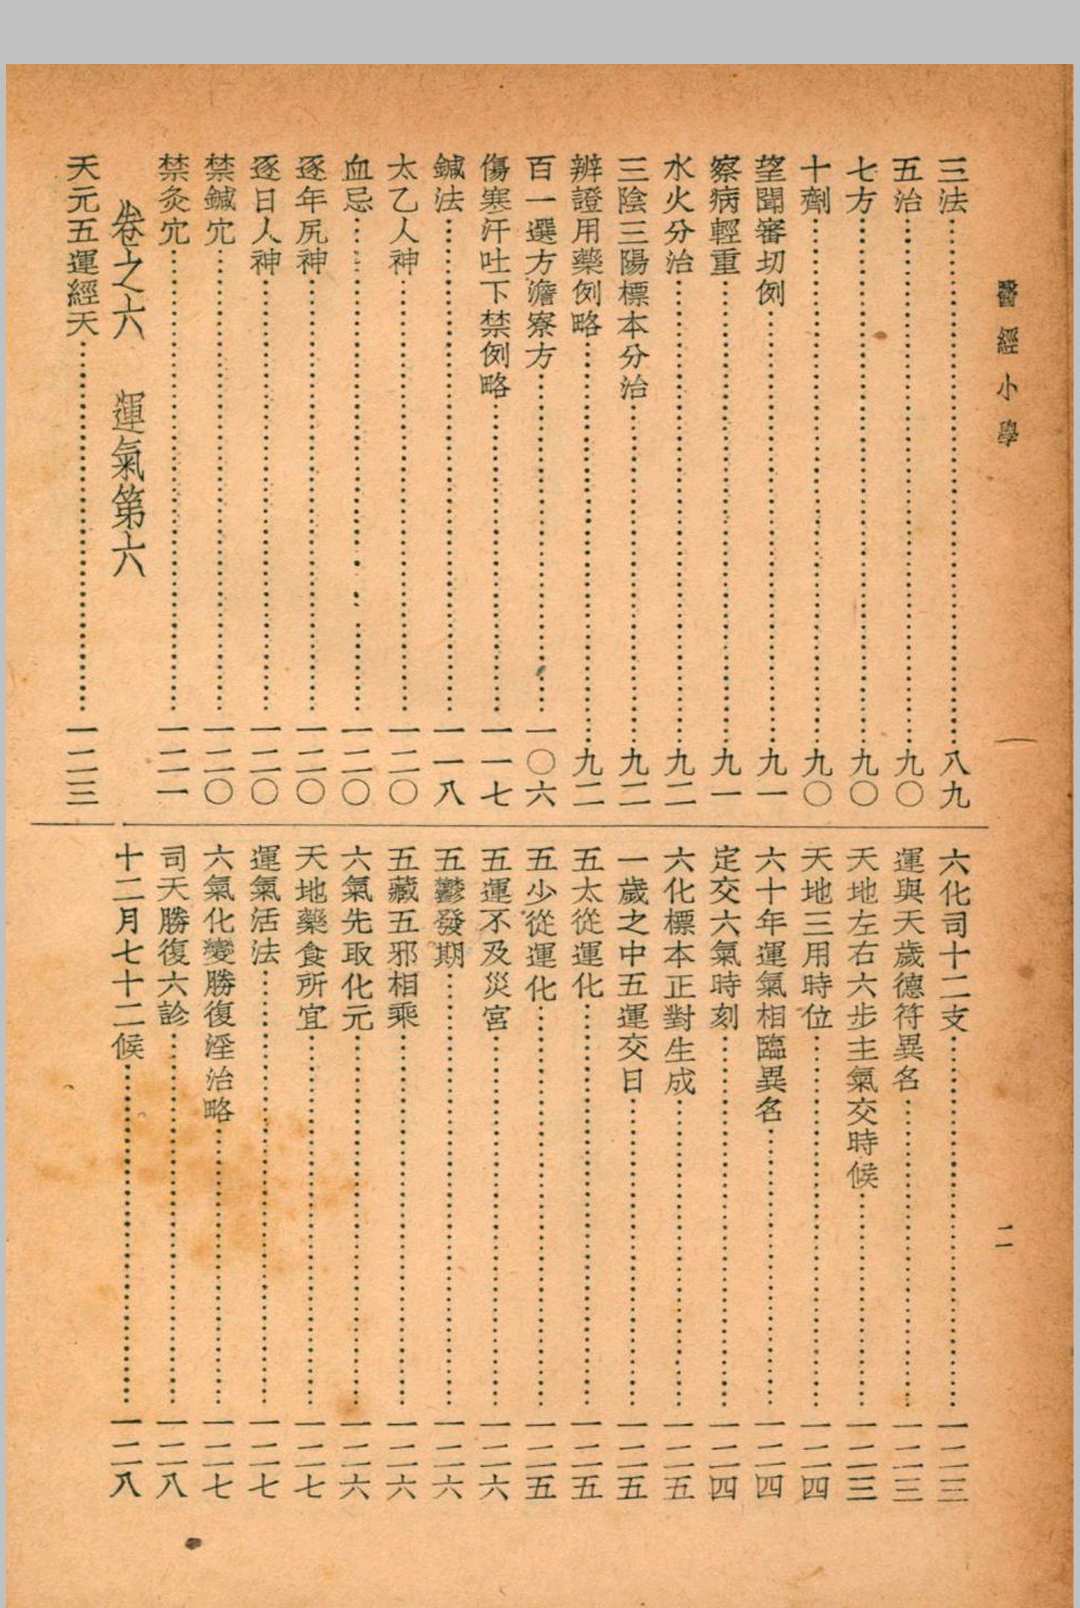 醫經小學
二
三法……八九
五治……九〇
七方……九〇
十劑……九〇
望聞審切例……九一
察病輕重……九一
水火分治……九二
三陰三陽標本分治……九二
辨證用藥例略……九二
百一選方澹寮方……一〇六
傷寒汗吐下禁例略……一一七
鍼法……一一八
太乙人神……一二〇
血忌……一二〇
逐年尻神……一二〇
逐日人神……一二〇
禁鍼穴……一二〇
禁灸穴……一二一
卷之六　運氣第六
天元五運經天……一二三
六化司十二支……一二三
運與天歲德符異名……一二三
天地左右六步主氣交時候……一二三
天地三用時位……一二四
六十年運氣相臨異名……一二四
定交六氣時刻……一二四
六化標本正對生成……一二五
一歲之中五運交日……一二五
五太從運化……一二五
五少從運化……一二五
五運不及災宮……一二六
五鬱發期……一二六
五藏五邪相乘……一二六
六氣先取化元……一二六
天地藥食所宜……一二七
運氣活法……一二七
六氣化變勝復淫治略……一二七
司天勝復六診……一二八
十二月七十二候……一二八